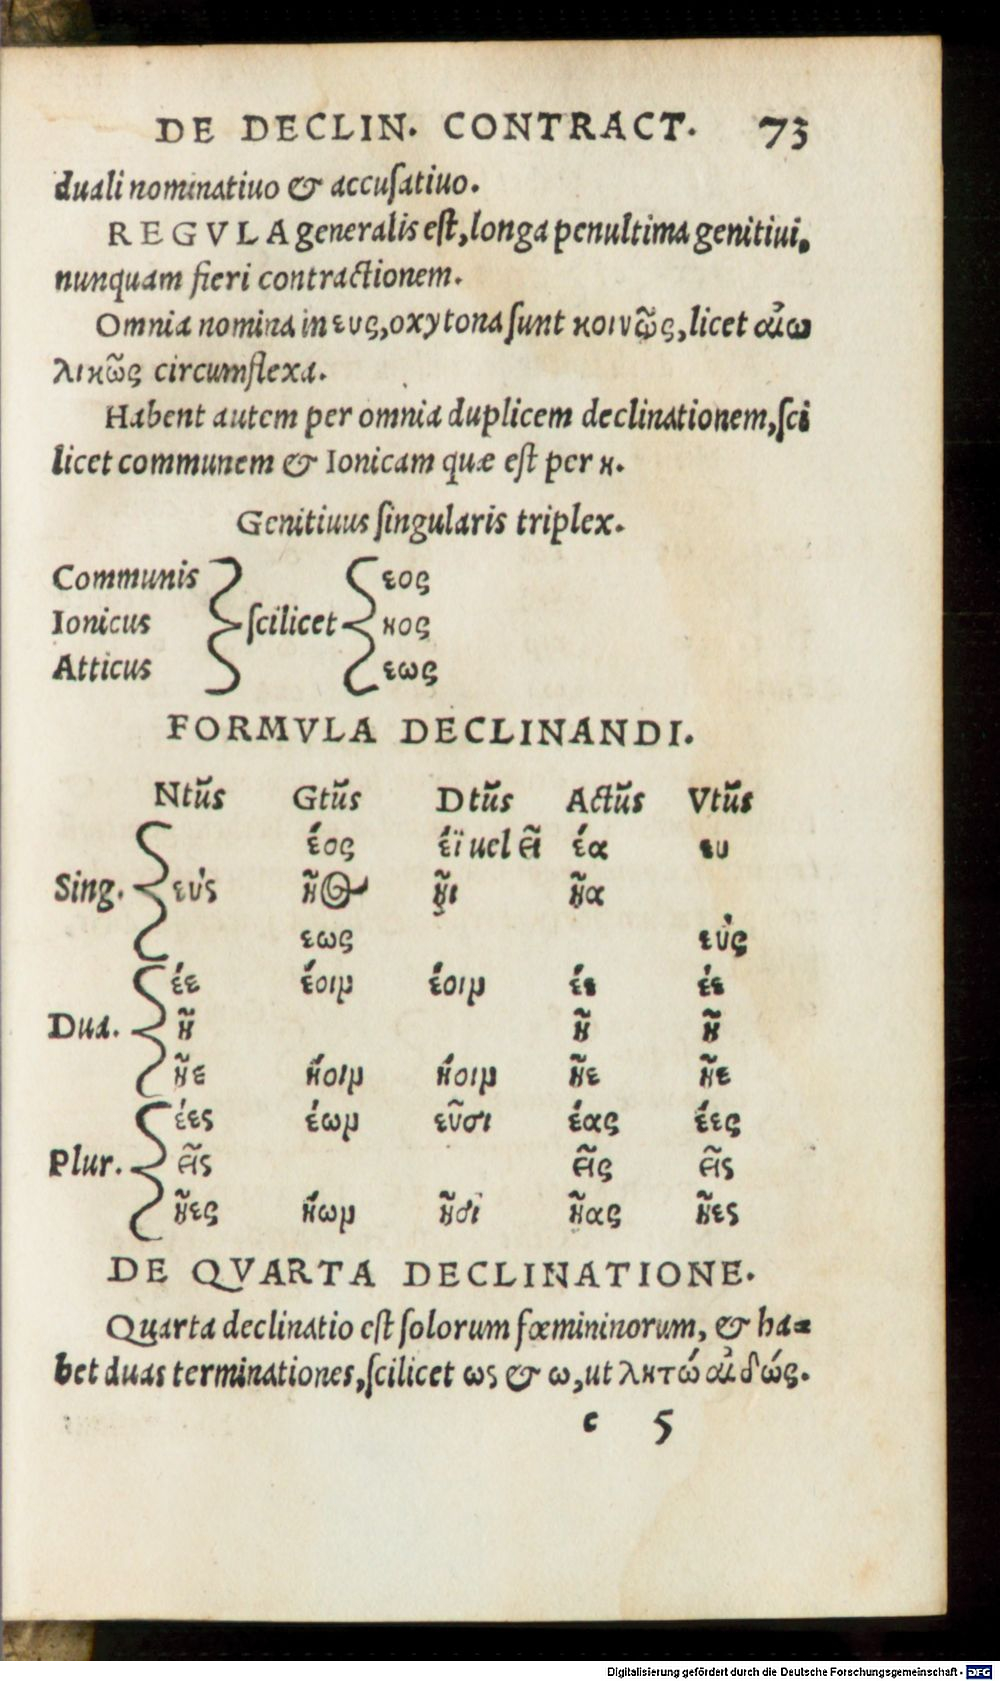 DE DECLIN. CONTRACT. 73
duali nominatiuo & accuſatiuo.
REGVLA generalis eſt, longa penultima genitiui,
nunquam fieri contractionem.
Omnia nomina in ευς, oxytona ſunt κοινῶς, licet αἰω
λικῶς circumflexa.
Habent autem per omnia duplicem declinationem, ſci
licet communem & Ionicam quæ eſt per η.
Genitiuus ſingularis triplex.
Communis εος
Ionicus ſcilicet ηος
Atticus εως
FORMVLA DECLINANDI.
Ntũs Gtũs Dtũs Actũs Vtũs
έος έϊ uel εῖ έα ευ
Sing. ευ'ς ῆος ῆι ῆα
εως ευ'ς
έε έοιν έοιν έε έε
Dua. ῆ ῆ ῆ
ῆε ήοιν ήοιν ῆε ῆε
έες έων εῦσι έας έες
Plur. εῖς εῖς εῖς
ῆες ήων ῆσι ῆας ῆες
DE QVARTA DECLINATIONE.
Quarta declinatio eſt ſolorum fœmininorum, & ha=
bet duas terminationes, ſcilicet ως & ω, ut λητώ αἰδώς.
c 5
Digitalisierung gefördert durch die Deutsche Forschungsgemeinschaft - DFG